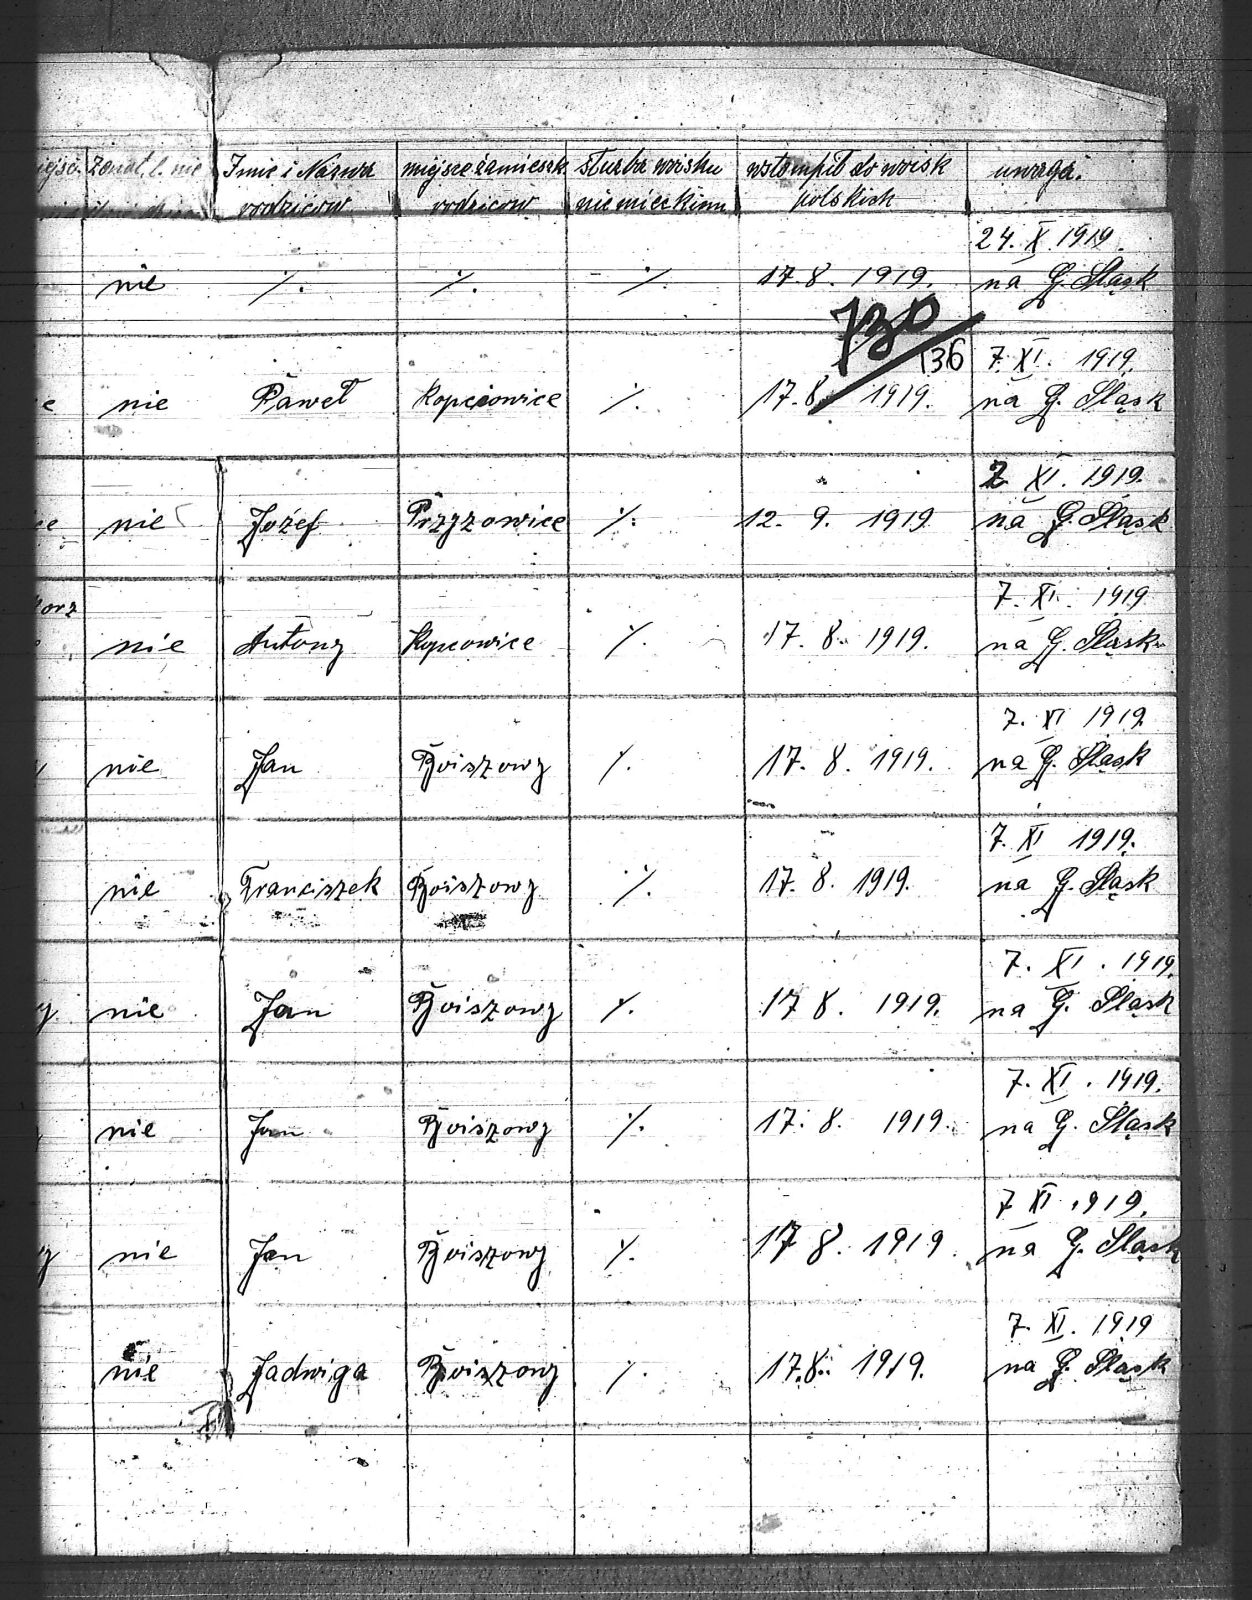 żonat, l. nie Imie i Nazwa miejsce zamieszk służba woisku wstompił do woisk uwaga.
rodziców rodziców niemieckim polskich
24. X 1919.
nie ·/. ·/. - ·/. 17. 8. 1919. na G. Śląsk
730
136 7. XI. 1919.
e nie Paweł Kopciowice ·/. 17. 8. 1919. na G. Śląsk
7 XI. 1919.
ce nie Józef Przyzowice ·/. 12. 9. 1919 na G. Śląsk
orz 7. XI. 1919
nie Antony Kopcowice ·/. 17. 8. 1919. na G. Śląsk
7. XI 1919
nie Jan Boiszowy ·/. 17. 8. 1919. na G. Śląsk
7. XI 1919.
nie Franciszek Boiszowy ·/. 17. 8. 1919. na G. Śląsk
7. XI. 1919.
y nie Jan Boiszowy ·/. 17 8. 1919. na G. Śląsk
7. XI. 1919.
nie Jan Boiszowy ·/. 17. 8. 1919. na G. Śląsk
7 XI 1919.
y nie Jan Boiszowy ·/. 17 8. 1919. na G. Śląsk
7. XI. 1919
nie Jadwiga Boiszowy ·/. 17. 8. 1919. na G. Śląsk